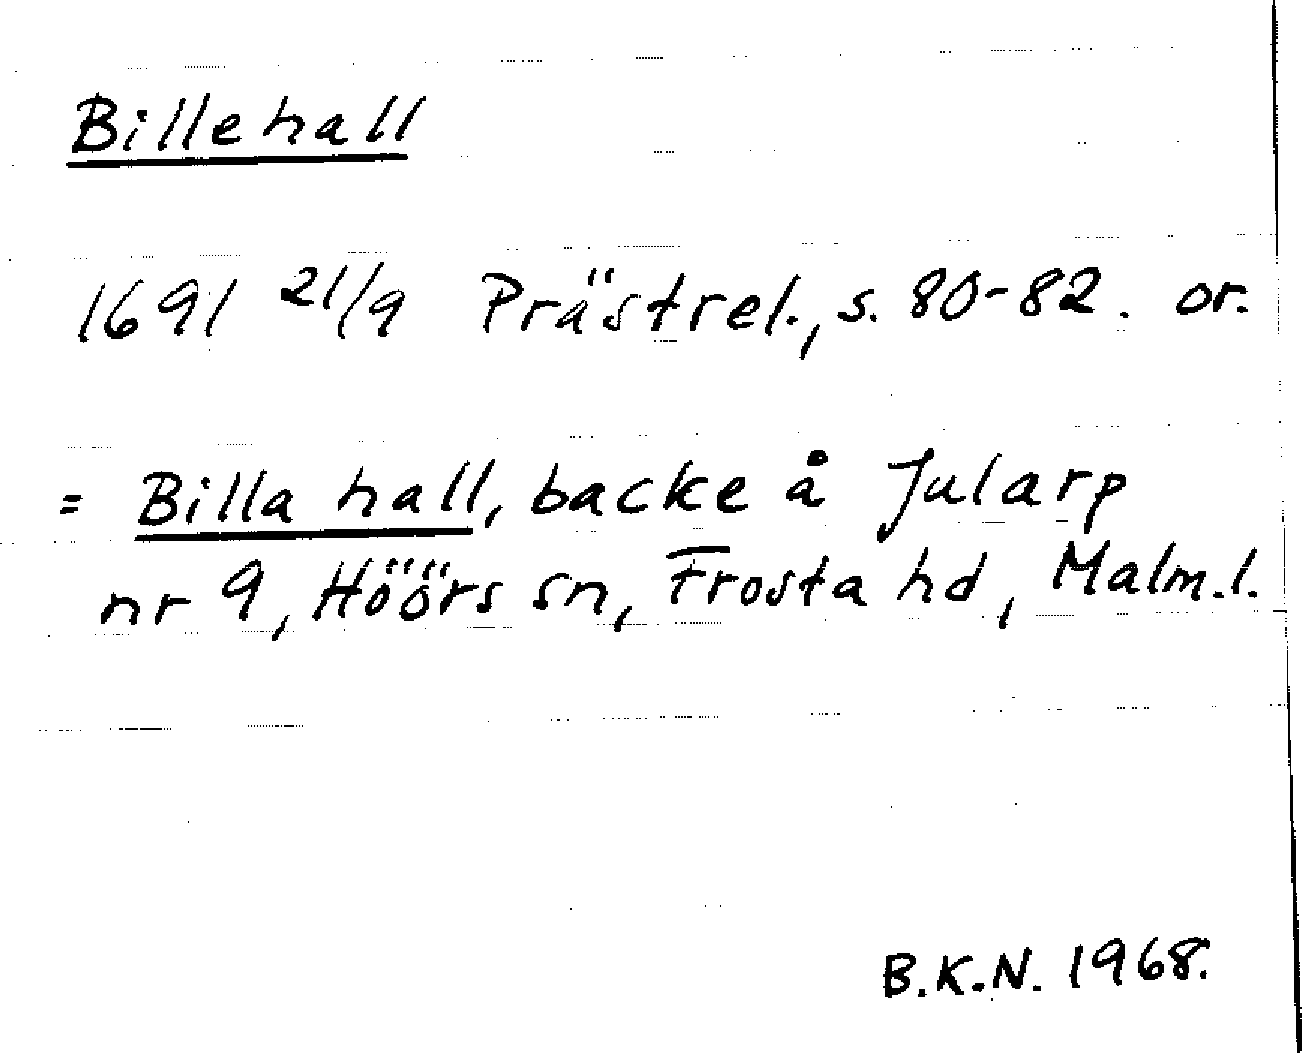 Billehall
1691 21/9 Prästrel., s. 80-82. or.
= Billa hall, backe å Jularp
nr 9, Höörs sn, Frosta hd, Malm.l.
B.K.N. 1968.